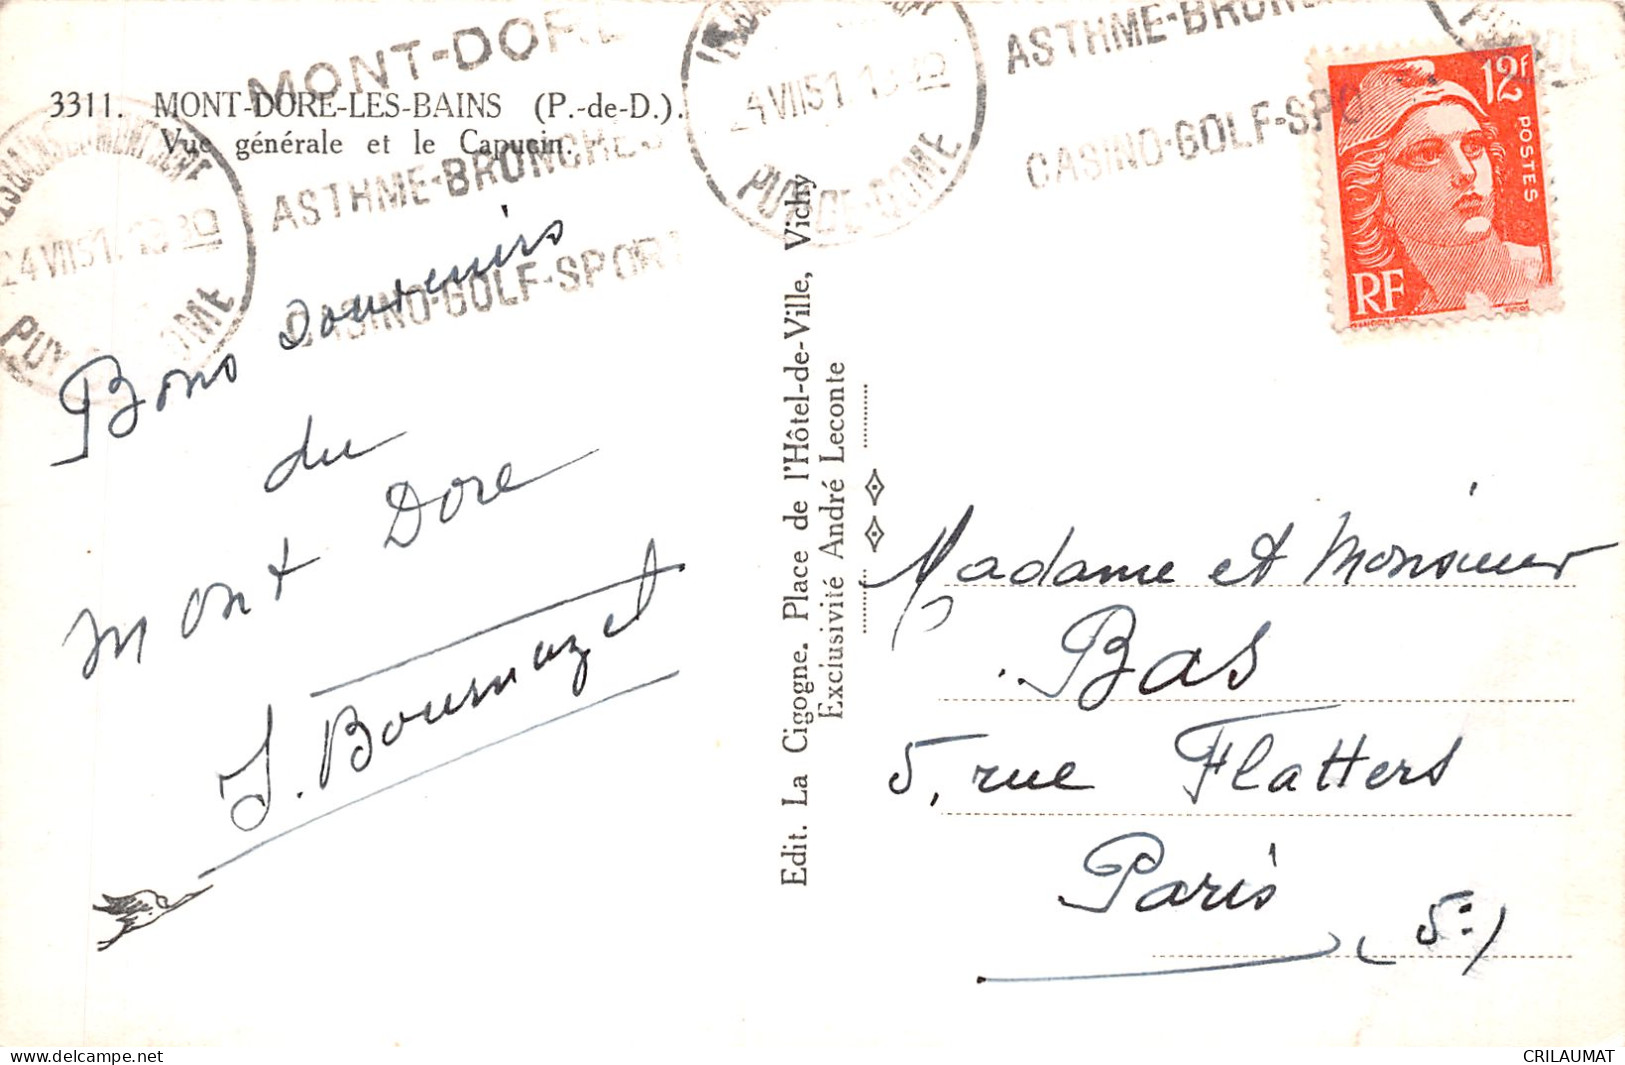 MONT-DORE
3311. MONT-DORE-LES-BAINS (P.-de-D.).
Vue générale et le Capucin.
ASTHME-BRONCHES
CASINO-GOLF-SPORT
24 VII 51
PUY
DOME
24 VII 51
PUY-DE-DOME
ASTHME-BRON
CASINO-GOLF-SPO
12F
POSTES
RF
Bons Souvenirs
du
Mont Dore
J. Bournazet
Edit. La Cigogne. Place de l'Hôtel-de-Ville, Vichy
Exclusivité André Leconte
Madame et Monsieur
Bas
5, rue Flatters
Paris
(5e)
CRILAUMAT